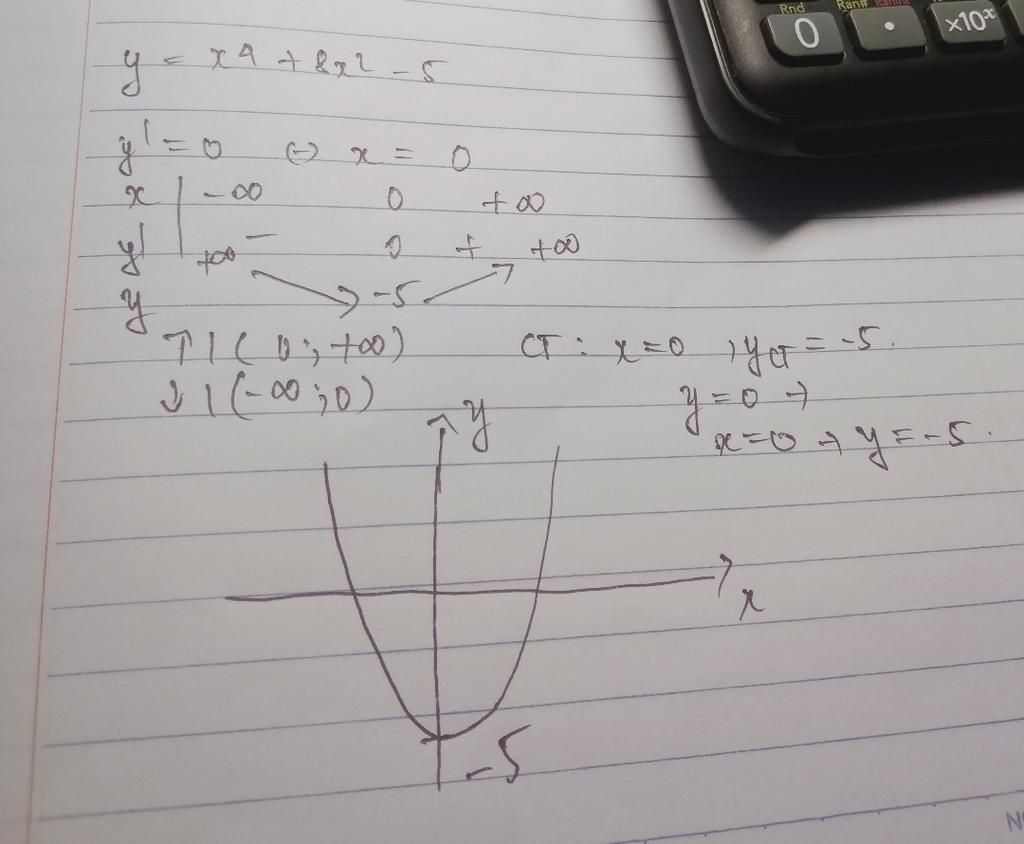 Rnd Ran#
0 . ×10ˣ
y = x⁴ + 8x² - 5
y' = 0 ⇔ x = 0
x | -∞ 0 +∞
y' | - 0 +
y +∞ ↘ -5 ↗ +∞
↑ | (0; +∞) CT: x=0, y_CT = -5.
↓ | (-∞; 0) y=0 →
x=0 → y = -5.
y
x
-5